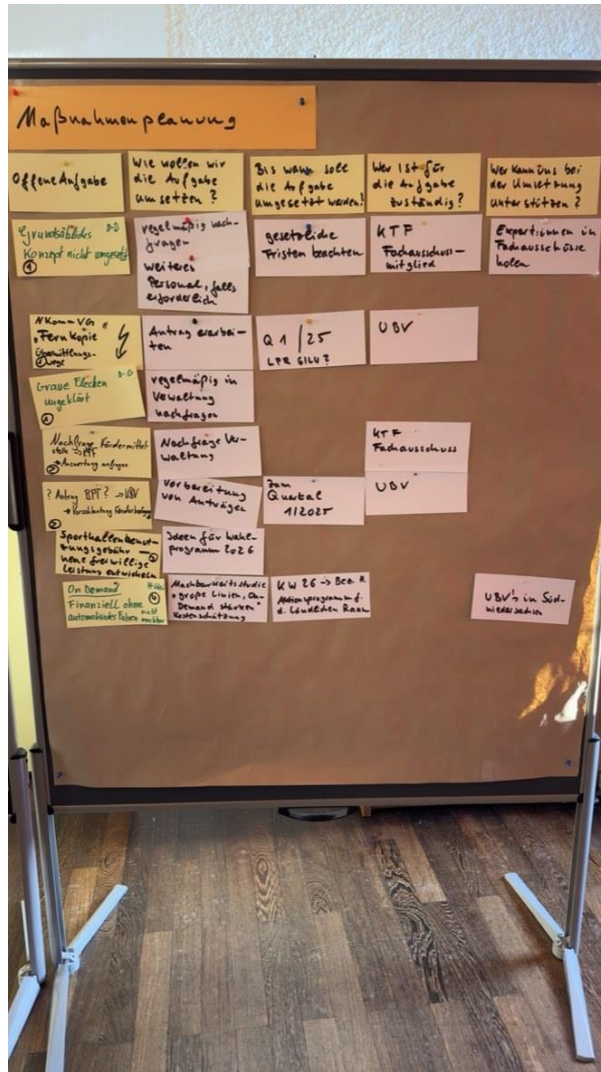 Maßnahmenplanung
Offene Aufgabe
Wie wollen wir
die Aufgabe
umsetzen?
Bis wann soll
die Aufgabe
umgesetzt werden?
Wer ist für
die Aufgabe
zuständig?
Wer kann uns bei
der Umsetzung
unterstützen?
Grundsätzliches D-D
Konzept nicht umgesetzt
1
regelmäßig nach-
fragen
weiteres
Personal, falls
erforderlich
gesetzliche
Fristen beachten
KTF
Fachausschuss-
mitglied
Expertinnen in
Fachausschüsse
holen
NKomVG
"Fernkopie"
Übermittlungs-
wege
Antrag erarbei-
ten
Q1/25
UBV
Graue Flecken
ungeklärt
regelmäßig in
Verwaltung
nachfragen
Nachfrage Fördermittel
Nachfrage Ver-
waltung
KTF
Fachausschuss
? Antrag → UBV
Vorbereitung
von Anträgen
zum
Quartal
1/2025
UBV
Sporthallenbenut-
zungsgebühr –
neue freiwillige
Leistung entwickeln
Ideen für Wahl-
programm 2026
On Demand
Finanziell ohne
automatisiertes Fahren nicht
machbar
Machbarkeitsstudie
"große Linien, On-
Demand stärken"
Kostenschätzung
KW 26 →
Aktionsprogramm f.
d. Ländlichen Raum
UBV's in Süd-
niedersachsen